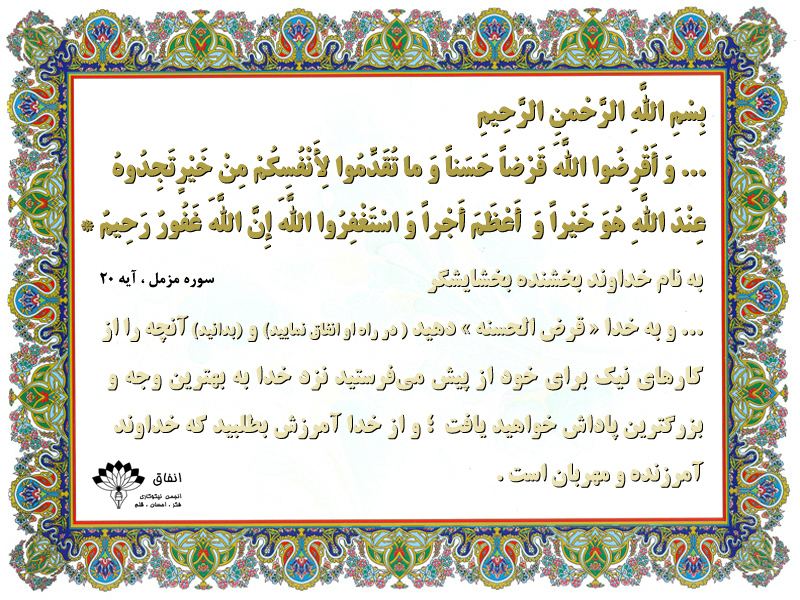 بِسْمِ اللَّهِ الرَّحْمنِ الرَّحِيمِ
... وَ أَقْرِضُوا اللَّهَ قَرْضاً حَسَناً وَ ما تُقَدِّمُوا لِأَنْفُسِكُمْ مِنْ خَيْرٍ تَجِدُوهُ
عِنْدَ اللَّهِ هُوَ خَيْراً وَ أَعْظَمَ أَجْراً وَ اسْتَغْفِرُوا اللَّهَ إِنَّ اللَّهَ غَفُورٌ رَحِيمٌ *
به نام خداوند بخشنده بخشایشگر
سوره مزمل ، آیه ۲۰
... و به خدا « قرض الحسنه » دهید ( در راه او انفاق نمایید) و (بدانید) آنچه را از
کارهای نیک برای خود از پیش می‌فرستید نزد خدا به بهترین وجه و
بزرگترین پاداش خواهید یافت ؛ و از خدا آمرزش بطلبید که خداوند
آمرزنده و مهربان است .
انفاق
انجمن نیکوکاری
فکر ، احسان ، قلم